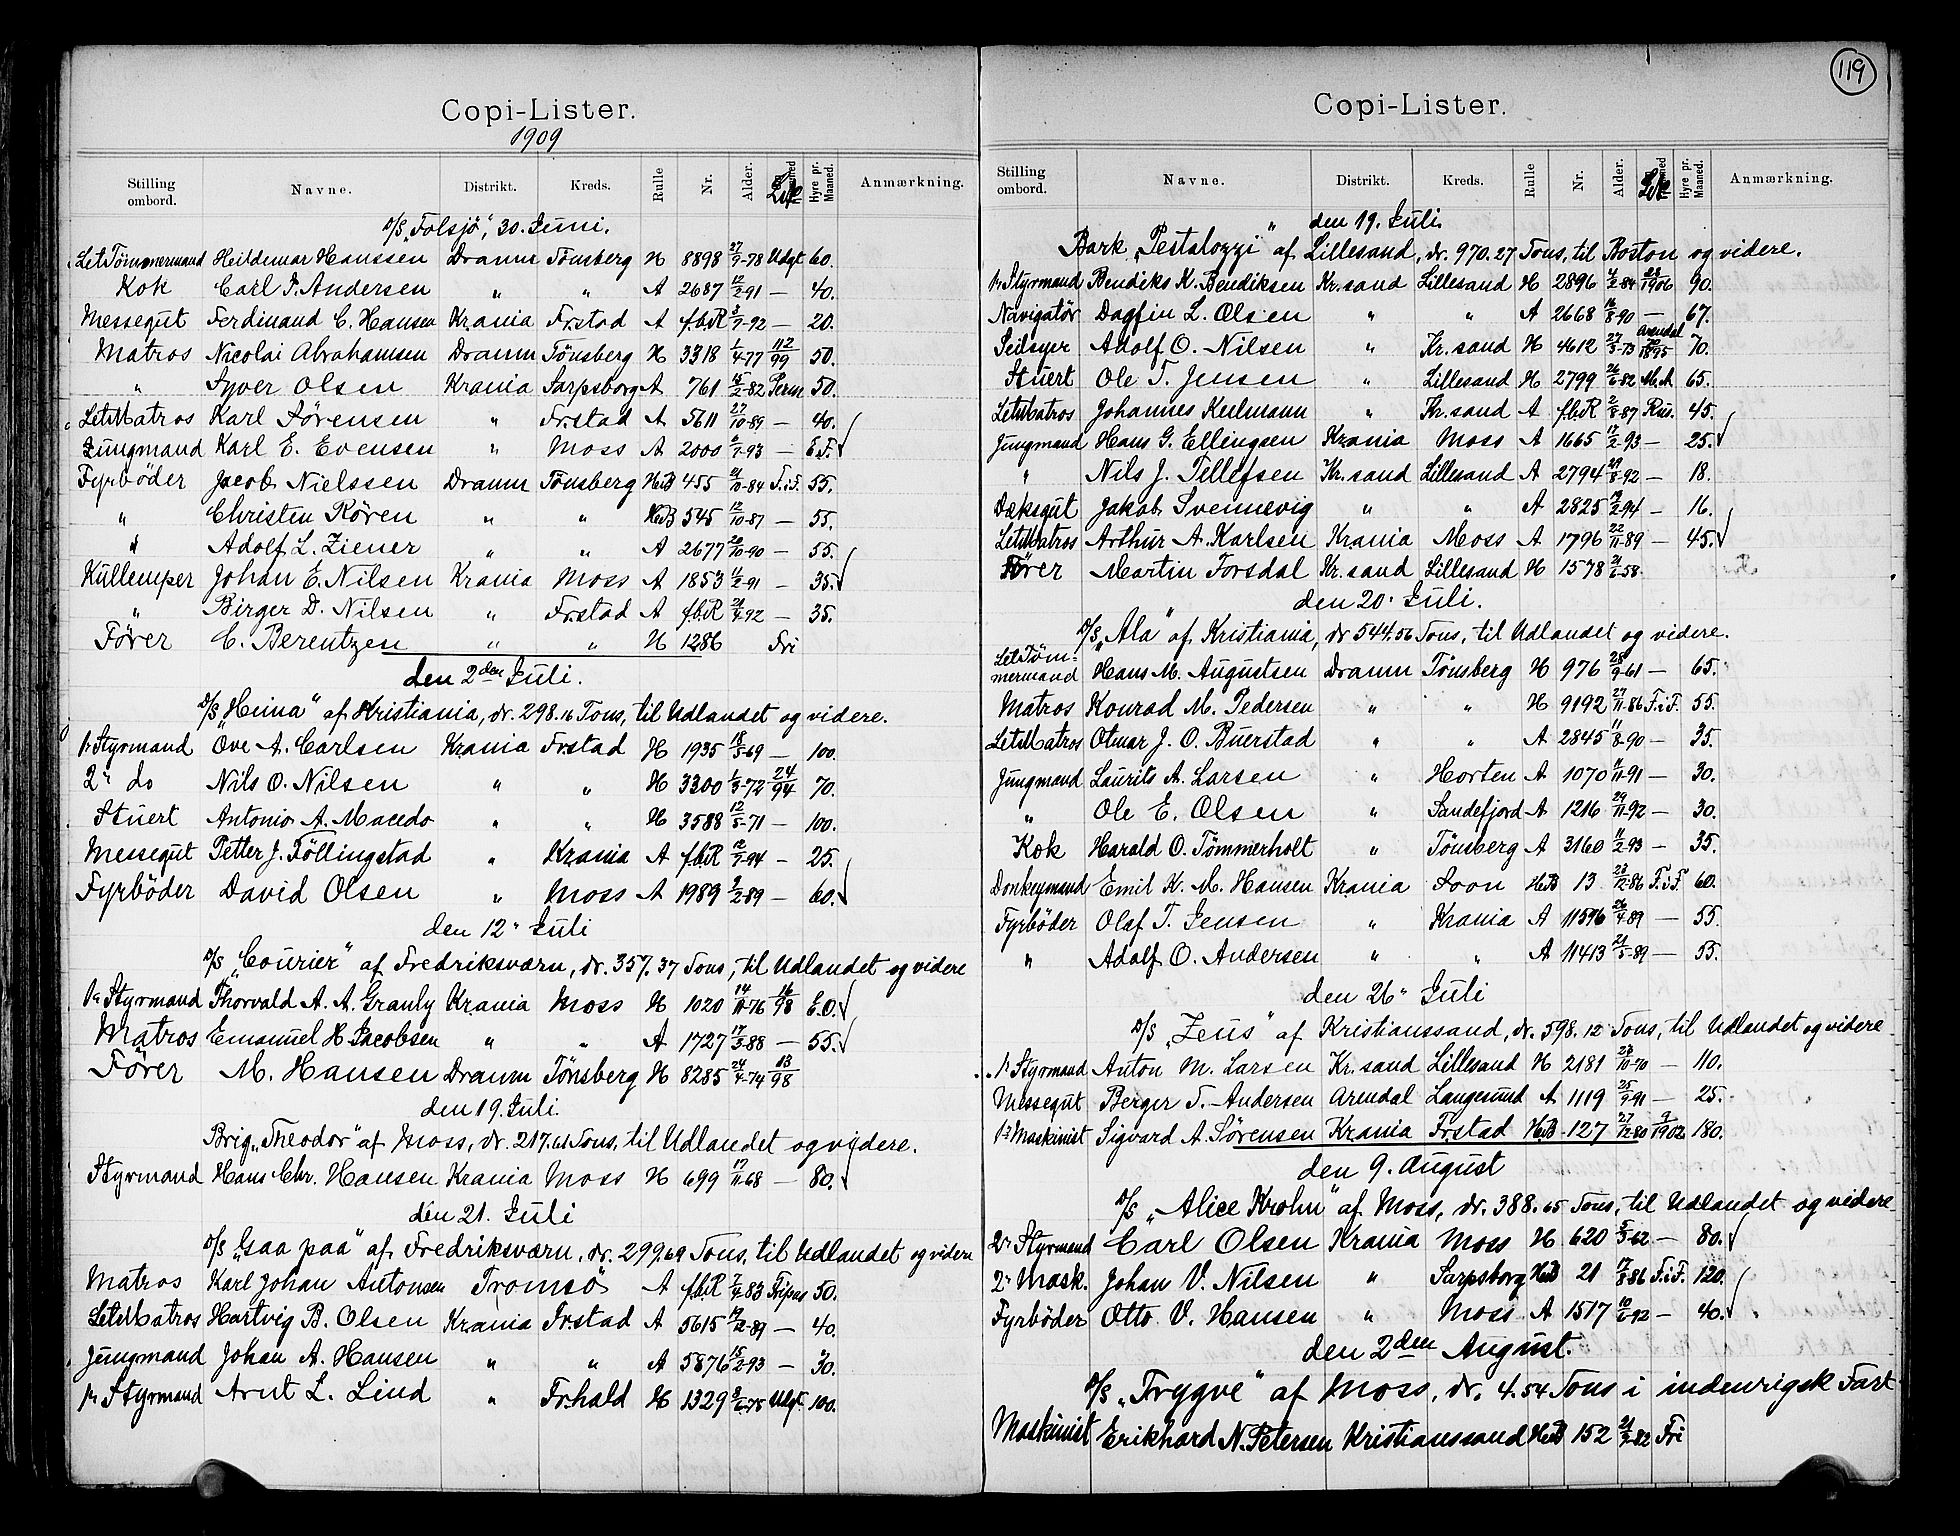 Copi-Lister.
1909
Stilling ombord. Navne. Distrikt. Kreds. Rulle Nr. Alder. Hyre pr. Maaned. Anmærkning.
D/S „Folsjö", 30. Juni.
Let Tømmermand Heildemar Hanssen Dramm Tönsberg H 8898 27/7-78 Udgt 60.
Kok Carl F. Andersen " " A 2687 12/2-91 — 40.
Messegut Ferdinand C. Hansen Krania Fr.stad A f.b.R 3/7-92 — 20.
Matros Nicolai Abrahamsen Dramm Tönsberg H 3318 1/4-77 112/99 50.
" Syver Olsen Krania Sarpsborg A 761 15/2-82 Perm 50.
LetMatros Karl Sörensen " Fr.stad A 5611 27/10-89 — 40.
Jungmand Karl E. Evensen " Moss A 2000 2/7-93 — E.F.
Fyrböder Jacob Nielssen Dramm Tönsberg HB 455 21/10-84 F.i.F. 55.
" Christen Rören " " HB 545 12/10-87 — 55.
" Adolf L. Ziener " " A 2677 20/10-90 — 55.
Küllemper Johan E. Nilsen Krania Moss A 1853 11/2-91 — 35.
" Birger D. Nilsen " Fr.stad A f.b.R 21/4-92 — 35.
Förer C. Berentzen " " H 1286 Fri
den 2den Juli.
D/S „Heina" af Kristiania, dr. 298.16 Tons, til Udlandet og videre.
1ste Styrmand Ove A. Carlsen Krania Fr.stad H 1935 18/5-69 — 100.
2n do Nils O. Nilsen " " H 3300 1/3-72 24/94 70.
Stuert Antonio A. Macedo " " H 3588 12/5-71 — 100.
Messegut Petter J. Föllingstad " Krania A f.b.R 12/7-94 — 25.
Fyrböder David Olsen " Moss A 1989 9/2-89 — 60.
den 12te Juli
D/S „Courier" af Fredriksværn, dr. 357.37 Tons, til Udlandet og videre
1ste Styrmand Thorvald A. A. Granly Krania Moss H 1020 14/11-76 16/98 E.O.
Matros Emanuel H. Jacobsen " " A 1727 17/5-88 — 55.
Förer M. Hansen Dramm Tönsberg H 8285 24/4-74 13/98
den 19. Juli.
Brig „Theodor" af Moss, dr. 217.61 Tons, til Udlandet og videre.
Styrmand Hans Chr. Hansen Krania Moss H 699 17/11-68 — 80.
den 21. Juli
D/S „Gaa paa" af Fredriksværn, dr. 299,69 Tons, til Udlandet og videre
Matros Karl Johan Antonsen Tromsö A f.b.R 7/4-83 50.
LetMatros Hartvig B. Olsen Krania Fr.stad A 5615 12/2-89 — 40.
Jungmand Johan A. Hansen " " A 5876 15/2-93 — 30.
1ste Styrmand Arnt L. Lind " Fr.hald H 1329 Udgt. 100.
119
Copi-Lister.
Stilling ombord. Navne. Distrikt. Kreds. Rulle Nr. Alder. Hyre pr. Maaned. Anmærkning.
den 19. Juli.
Bark „Pestalozzi" af Lillesand, dr. 970.27 Tons, til Boston og videre.
1ste Styrmand Bendiks K. Bendiksen Kr.sand Lillesand H 2896 4/2-84 23/1906 90.
Navigatör Dagfin L. Olsen " " A 2668 16/8-90 — 67.
Seilsyer Adolf O. Nilsen " Kr.sand H 4612 27/3-73 Arendal 70/1895 70.
Stuert Ole T. Jensen " Lillesand H 2799 26/6-82 M.A. 65.
LetMatros Johannes Keelmann " Kr.sand A f.b.R 2/8-87 Rus. 45.
Jungmand Hans G. Ellingsen Krania Moss A 1665 17/2-93 — 25.
" Nils J. Tellefsen Kr.sand Lillesand A 2794 29/8-92 — 18.
Dæksgut Jakob Svennevig " " A 2825 12/2-94 — 16.
LetMatros Arthur A. Karlsen Krania Moss A 1796 22/11-89 — 45.
Förer Martin Forsdal Kr.sand Lillesand H 1578 21/6-58
den 20. Juli.
D/S „Ala" af Kristiania, dr 544.56 Tons, til Udlandet og videre.
Let Tømmermand Hans M. Augustsen Dramm Tönsberg H 976 28/9-61 — 65.
Matros Konrad M. Pedersen " " H 9192 27/11-86 F.i.F. 55.
LetMatros Otmar J. O. Buerstad " " A 2845 11/8-90 — 35.
Jungmand Laurits A. Larsen " Horten A 1070 11/11-91 — 30.
" Ole E. Olsen " Sandefjord A 1216 29/11-92 — 30.
Kok Harald O. Tömmerholt " Tönsberg A 3160 11/2-93 — 35.
Donkeymand Emil K. M. Hansen Krania Soon HB 13 23/12-86 F.i.F. 60.
Fyrböder Olaf T. Jensen " Krania A 11596 26/4-89 — 55.
" Adolf O. Andersen " " A 11413 21/5-89 — 55.
den 26te Juli
D/S „Zeus" af Kristianssand, dr. 598.12 Tons, til Udlandet og videre
1ste Styrmand Anton M. Larsen Kr.sand Lillesand H 2181 23/10-70 — 110.
Messegut Berger T. Andersen Arendal Langesund A 1119 25/9-91 — 25.
1ste Maskinist Sigvard A. Sörensen Krania Fr.stad HB 127 27/12-80 9/1902 180.
den 9. August
D/S „Alice Krohn" af Moss, dr. 388.65 Tons, til Udlandet og videre
2n Styrmand Carl Olsen Krania Moss H 620 5/5-62 — 80.
2n Mask. Johan V. Nilsen " Sarpsborg HB 21 17/8-86 F.i.F. 120.
Fyrböder Otto V. Hansen " Moss A 1517 10/6-92 — 40.
den 2den August.
D/S „Trygve" af Moss, dr. 4.54 Tons i indenrigsk Fart
Maskinist Erikhard N. Petersen Kristianssand HB 152 21/7-82 Fri